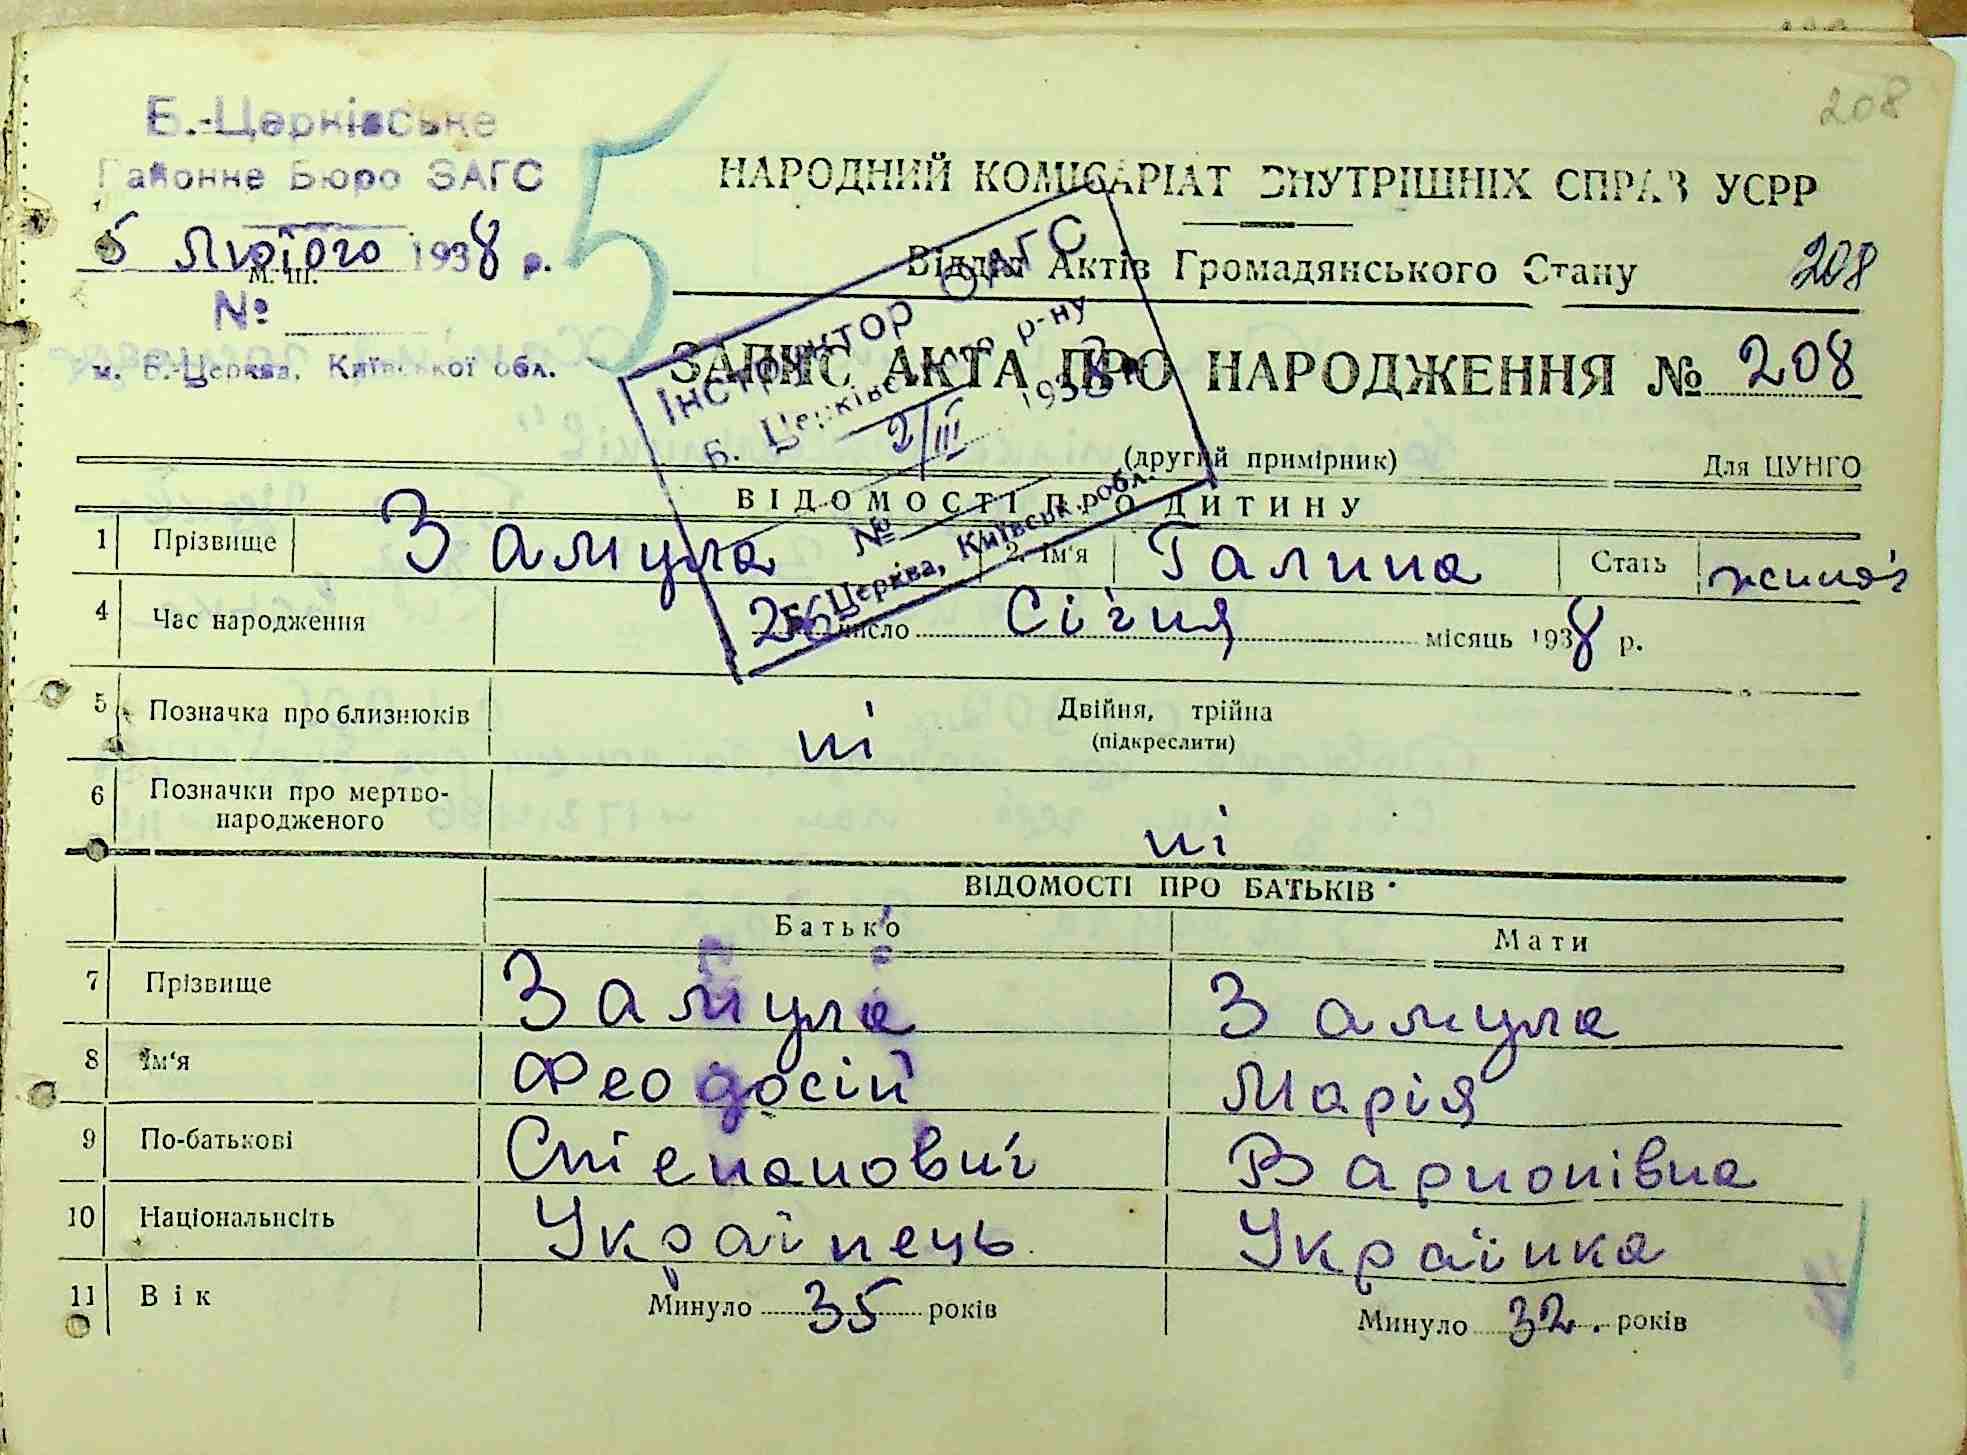 208
Б.-Церківське
Районне Бюро ЗАГС
5 Лютого 1938 р.
М. Ш.
№
м. Б.-Церква, Київської обл.
5
НАРОДНИЙ КОМІСАРІАТ ВНУТРІШНІХ СПРАВ УСРР
Відділ Актів Громадянського Стану
208
ЗАПИС АКТА ПРО НАРОДЖЕННЯ № 208
(другий примірник)
Для ЦУНГО
Інструктор ОАГС
Б. Церківського р-ну
2/III 1938
№
Б. Церква, Київськ. обл.
ВІДОМОСТІ ПРО ДИТИНУ
1 Прізвище Замула 2. Ім'я Галина Стать жіноч
4 Час народження 26 число Січня місяць 1938 р.
5 Позначка про близнюків ні Двійня, трійна
(підкреслити)
6 Позначки про мертво-
народженого ні
ВІДОМОСТІ ПРО БАТЬКІВ
Батько Мати
7 Прізвище Замула Замула
8 Ім'я Феодосій Марія
9 По-батькові Степанович Варионівна
10 Національність Українець Українка
11 Вік Минуло 35 років Минуло 32. років